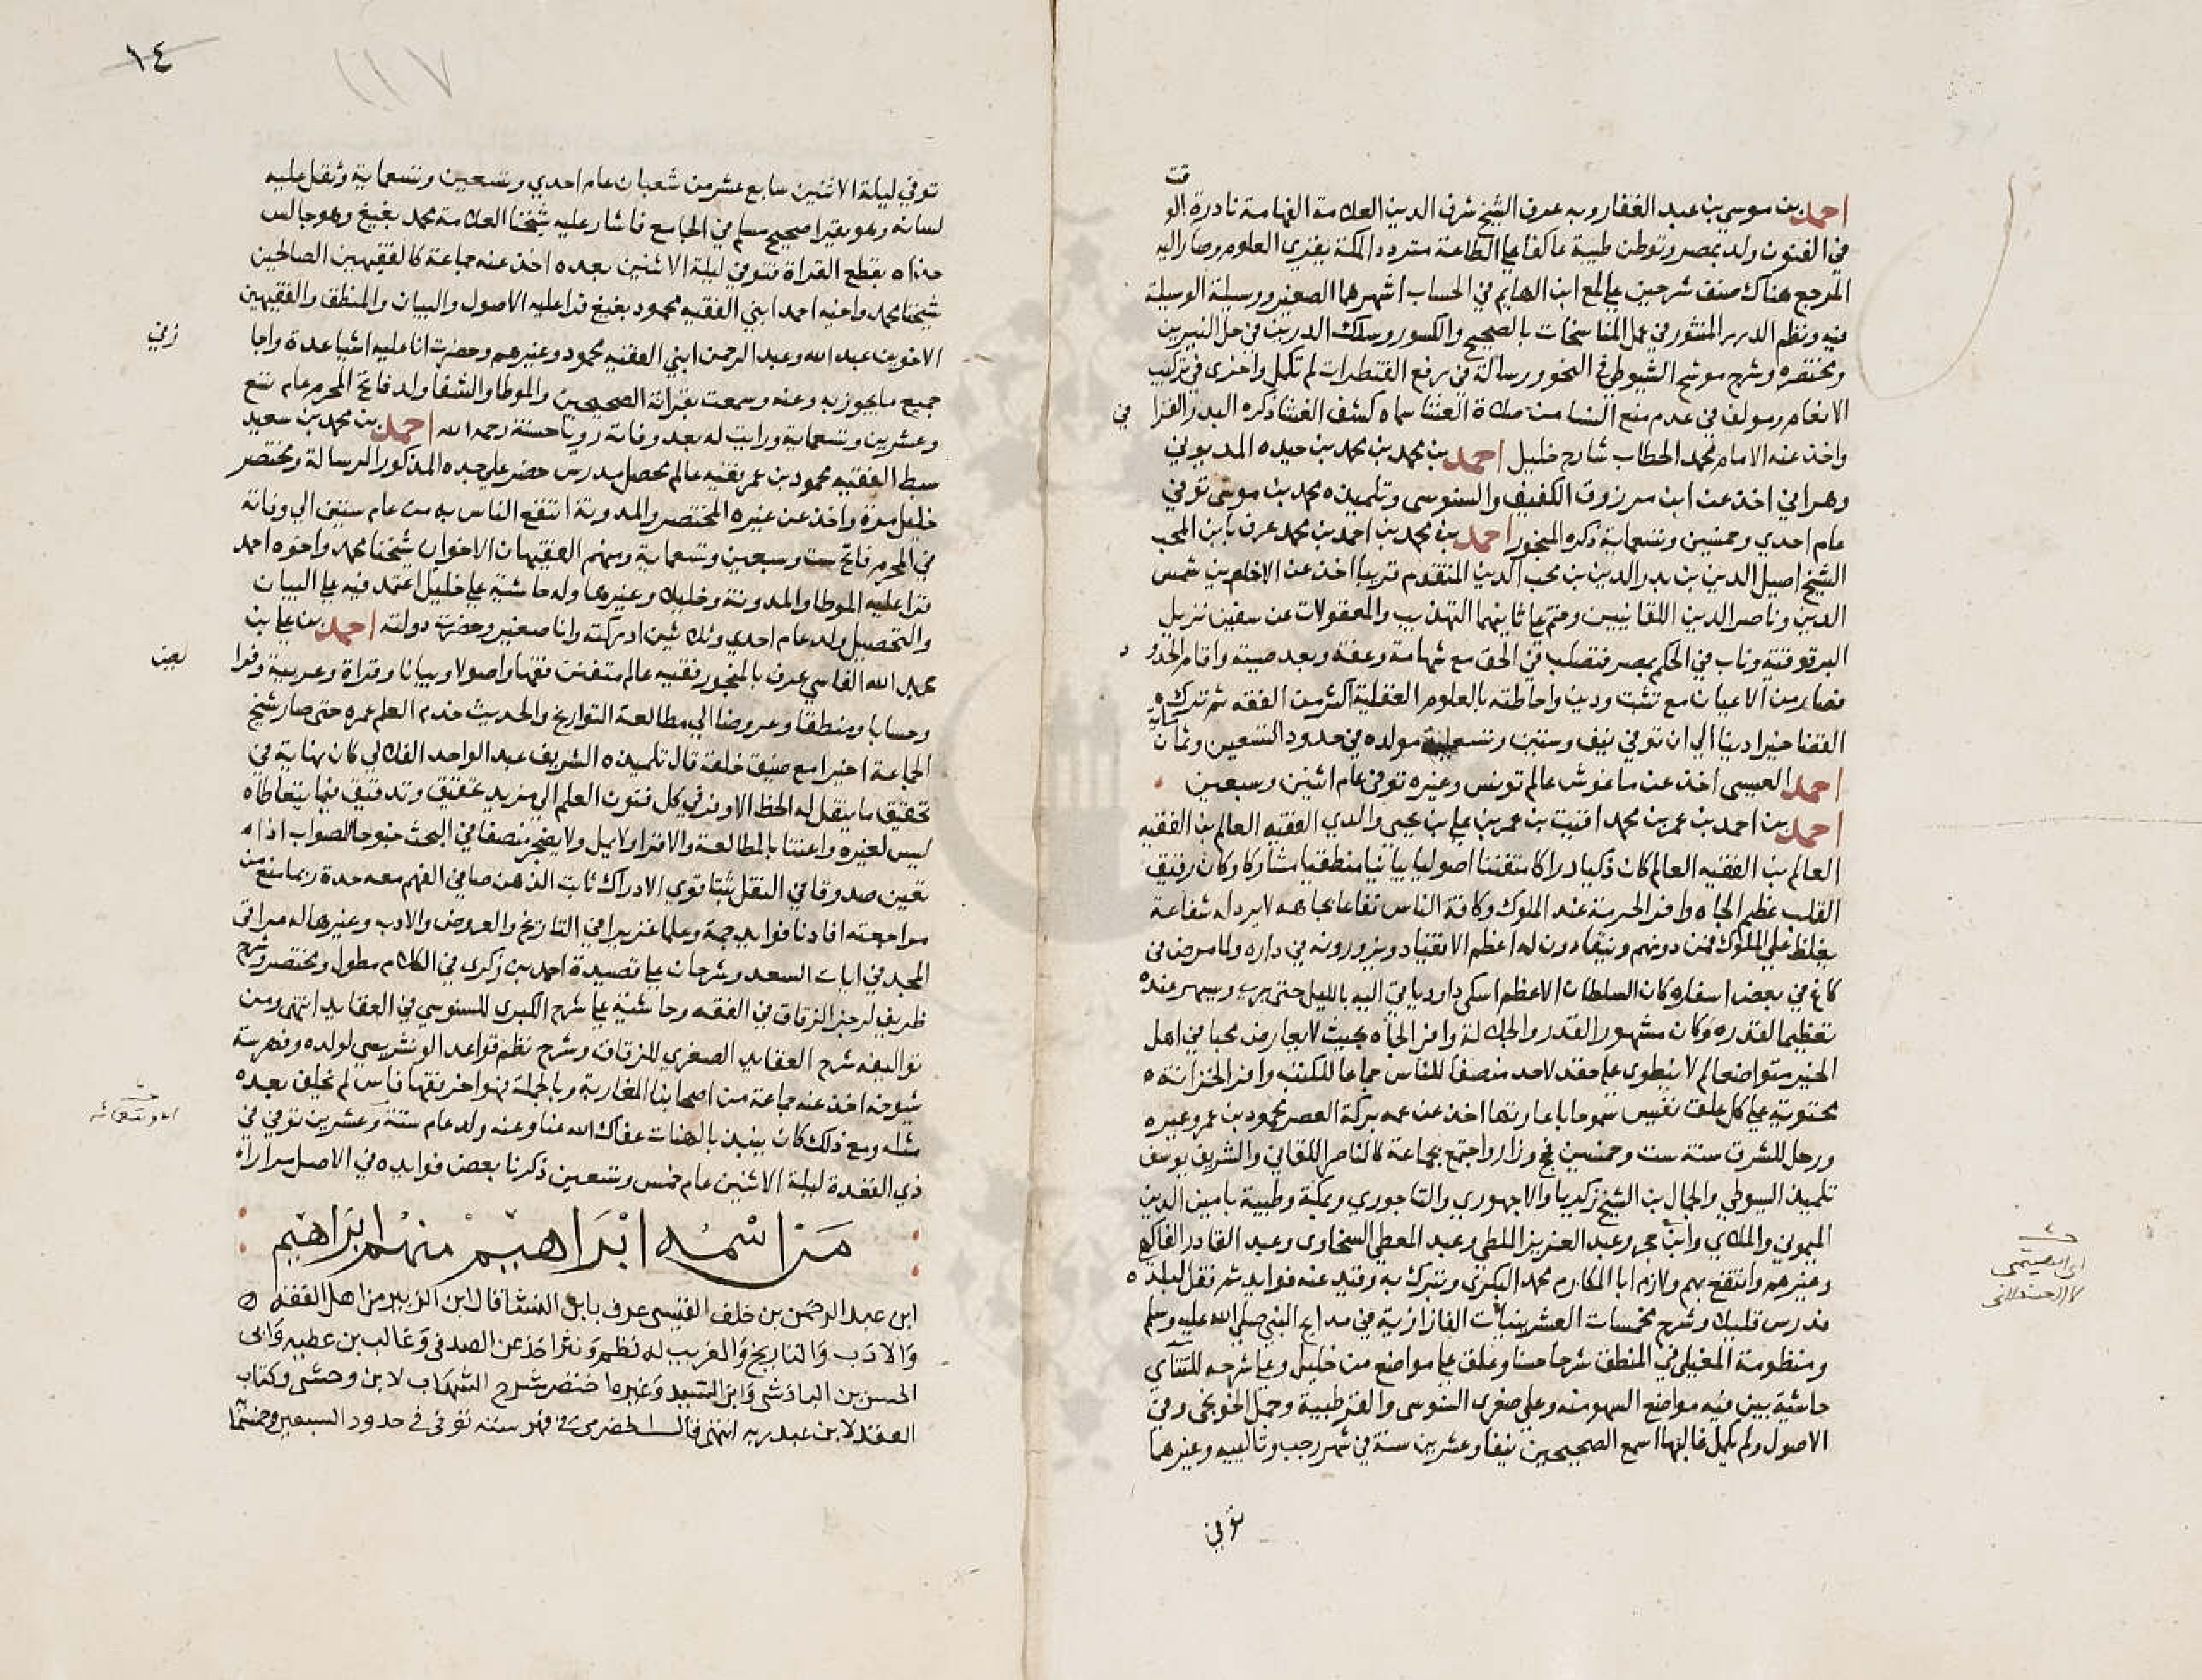 احمد بن موسي بن عبد الغفار وبه عرف الشيخ شرف الدين العلامة الفهامة نادرة الو
قت
في الفنون ولد بمصر وتوطن طيبة عاكفا علي الطاعة مترددا لمكة يقري العلوم وصار اليه
المرجع هناك صنف شرحين علي لمع ابن الهايم في الحساب اشهرهما الصغير ووسيلة الوسيلة
فيه ونظم الدرر المنثور في عمل المناسخات بالصحيح والكسور وسلك الدربين في حل النيرين
ومختصره وشرح موشح السيوطي في النحو ورسالة في رفع القنطرات لم تكمل واخري في تركيب
الانغام ومولف في عدم منع النسا من صلاة العشا سماه كشف الغشا ذكره البدر القرا
في
واخذ عنه الامام محمد الحطاب شارح خليل احمد بن محمد بن محمد بن حيده المديوني
وهراني اخذ عن ابن مرزوق الكفيف والسنوسي وتلميذه محمد بن موسي توفي
عام احدي وخمسين وتسعماية ذكره المنجور احمد بن محمد بن احمد بن محمد عرف بابن المحب
الشيخ اصيل الدين بن بدر الدين بن محب الدين المتقدم قريبا اخذ عن الاخوين شمس
الدين وناصر الدين اللقانيين وختم علي ثانيهما التهذيب والمعقولات عن سفين نزيل
البرقوقية وناب في الحكم بمصر فتصلب في الحق مع شهامة وعفة وبعد صيته واقام الحدو
د
فصار من الاعيان مع تثبت ودين واحاطته بالعلوم العقلية اكثر من الفقه ثم ترك
القضا خيرا دينا الي ان توفي نيف وستين وتسعماية مولده في حدود التسعين وثمان
ماية
احمد العيسي اخذ عن ماغوش عالم تونس وغيره توفي عام اثنين وسبعين
احمد بن احمد بن عمر بن محمد اقيت بن عمر بن علي بن يحيي والدي الفقيه العالم بن الفقيه
العالم بن الفقيه العالم كان ذكيا دراكا متفننا اصوليا بيانيا منطقيا مشاركا وكان رقيق
القلب عظيم الجاه وافر الحرمة عند الملوك وكافة الناس نفاعا بجاهه لا يرد له شفاعة
يغلظ علي الملوك فمن دونهم وينقادون له اعظم الانقياد ويزورونه في داره ولما مرض في
كاغ في بعض اسفاره كان السلطان الاعظم اسكي داود ياتي اليه بالليل حتي بري ويسهر عنده
تعظيما لقدره وكان مشهور القدر والجلالة وافر الجاه بحيث لا يعارض محبا في اهل
الخير متواضعا لهم لا ينطوي علي حقد لاحد منصفا للناس جماعا للكتب وافر الخزانة
محتوية علي كل علق نفيس سموحا باعارتها اخذ عن عمه بركة العصر محمود بن عمر وغيره
ورحل للشرق سنة ست وخمسين فحج وزار واجتمع بجماعة كالناصر اللقاني والشريف يوسف
تلميذ السيوطي والجمال بن الشيخ زكريا والاجهوري والتاجوري وبمكة وطيبة بامين الدين
الميموني والملاي وابن حجر وعبد العزيز اللمطي وعبد المعطي السخاوي وعبد القادر الفاكهي
وغيرهم وانتفع بهم ولازم ابا المكارم محمد البكري وتبرك به وقيد عنه فوايد ثم نقل لبلده
فدرس قليلا وشرح مخمسات العشرينيات الفازازية في مدايح النبي صلي الله عليه وسلم
ومنظومة المغيلي في المنطق شرحا حسنا وعلق علي مواضع من خليل وعلي شرحه للتتاي
حاشية بين فيه مواضع السهو منه وعلي صغري السنوسي والقرطبية وجمل الخونجي وفي
الاصول ولم يكمل غالبها اسمع الصحيحين نيفا وعشرين سنة في شهر رجب وتالييه وغيرهما
توفي
١٤
١١٧
توفي ليلة الاثنين سابع عشر من شعبان عام احدي وتسعين وتسعماية وثقل عليه
لسانه وهو يقرا صحيح مسلم في الجامع فاشار عليه شيخنا العلامة محمد بغيغ وهو جالس
حذاه بقطع القراة فتوفي ليلة الاثنين بعده اخذ عنه جماعة كالفقيهين الصالحين
شيخنا محمد واخيه احمد ابني الفقيه محمود بغيغ قرا عليه الاصول والبيان والمنطق والفقيهين
الاخوين عبد الله وعبد الرحمن ابني الفقيه محمود وغيرهم وحضرت انا عليه اشيا عدة واجا
زني
جميع ما يجوز به وعنه وسمعت بقراته الصحيحين والموطا والشفا ولد فاتح المحرم عام تسع
وعشرين وتسعماية ورايت له بعد وفاته رويا حسنة رحمه الله احمد بن محمد بن سعيد
سبط الفقيه محمود بن عمر فقيه عالم محصل مدرس حضر علي جده المذكور الرسالة ومختصر
خليل مرة واخذ عن غيره المختصر والمدونة انتفع الناس به من عام ستين الي وفاته
في المحرم فاتح ست وسبعين وتسعماية ومنهم الفقيهان الاخوان شيخنا محمد واخوه احمد
قرا عليه الموطا والمدونة وخليلا وغيرها وله حاشية علي خليل اعتمد فيه علي البيان
والتحصيل ولد عام احدي وثلاثين ادركته وانا صغير وحضرت دولته احمد بن علي بن
عبد الله الفاسي عرف بالمنجور فقيه عالم متفنن فقها واصولا وبيانا وقراة وعربية وفرا
يض
وحسابا ومنطقا وعروضا الي مطالعة التواريخ والحديث خدم العلم عمره حتي صار شيخ
الجماعة اخيرا مع ضيق خلقه قال تلميذه الشريف عبد الواحد الفلالي كان نهاية في
تحقيق ما ينقل له الحظ الاوفر في كل فنون العلم الي مزيد تحقيق وتدقيق فيما يتعاطاه
ليس لغيره واعتنا بالمطالعة والاقرا ولا يمل ولا يضجر منصفا في البحث جنوحا للصواب اذا
تعين صدوقا في النقل ثبتا قوي الادراك ثابت الذهن صافي الفهم معه حدة ربما منع من
مراجعته افادنا فوايد جمة وعلما غزيرا في التاريخ والعروض والادب وغيرها له مراقي
المجد في ايات السعد وشرحان علي قصيدة احمد بن زكري في الكلام مطول ومختصر وشرح
ظريف لرجز الزقاق في الفقه وحاشية علي شرح الكبري للسنوسي في العقايد انتهي ومن
تواليفه شرح العقايد الصغري للزقاق وشرح نظم قواعد الونشريسي لولده وفهرسة
شيوخه اخذ عنه جماعة من اصحابنا المغاربة وبالجملة فهو اخر فقها فاس لم يخلف بعده
مثله ومع ذلك كان ينبز بالهنات عفا الله عنا وعنه ولد عام ستة وعشرين توفي في
ذي القعدة ليلة الاثنين عام خمس وتسعين ذكرنا بعض فوايده في الاصل مرارا
من اسمه ابراهيم منهم ابراهيم
ابن عبد الرحمن بن خلف القيسي عرف بابن النشا قال ابن الزبير من اهل الفقه
والادب والتاريخ والغريب له نظم ونثر اخذ عن الصدفي وغالب بن عطيه وابي
الحسن بن الباذش وابن السيد وغيره اختصر شرح الشهاب لابن وحشي وكتاب
العقد لابن عبد ربه انتهي قال الحضرمي في فهرسته توفي في حدود السبعين وخمسما